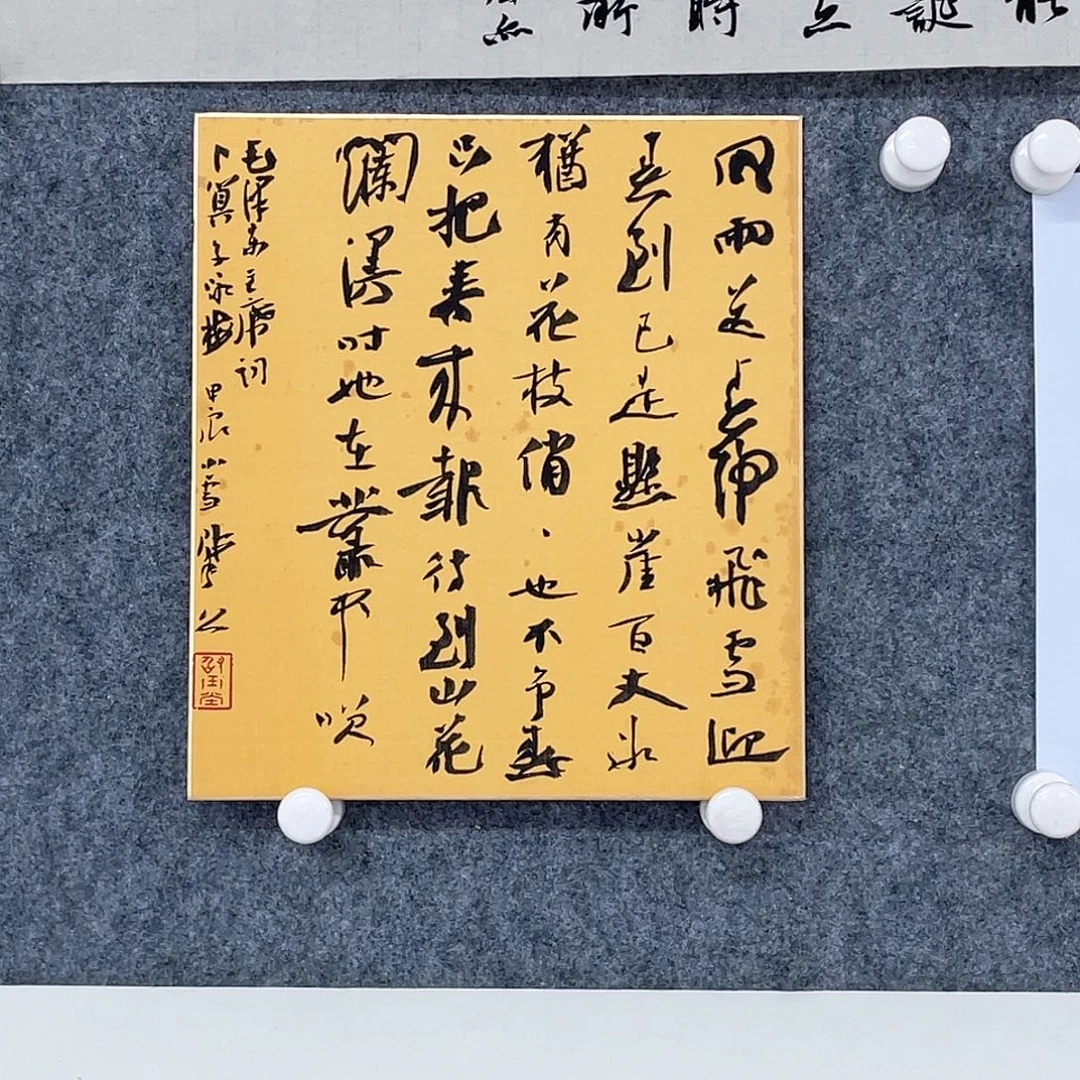 風雨送春歸飛雪迎
春到已是懸崖百丈冰
猶有花枝俏、也不争春
只把春来報待到山花
爛漫时她在叢中咲
毛澤东主席词
卜算子咏梅 甲辰小雪